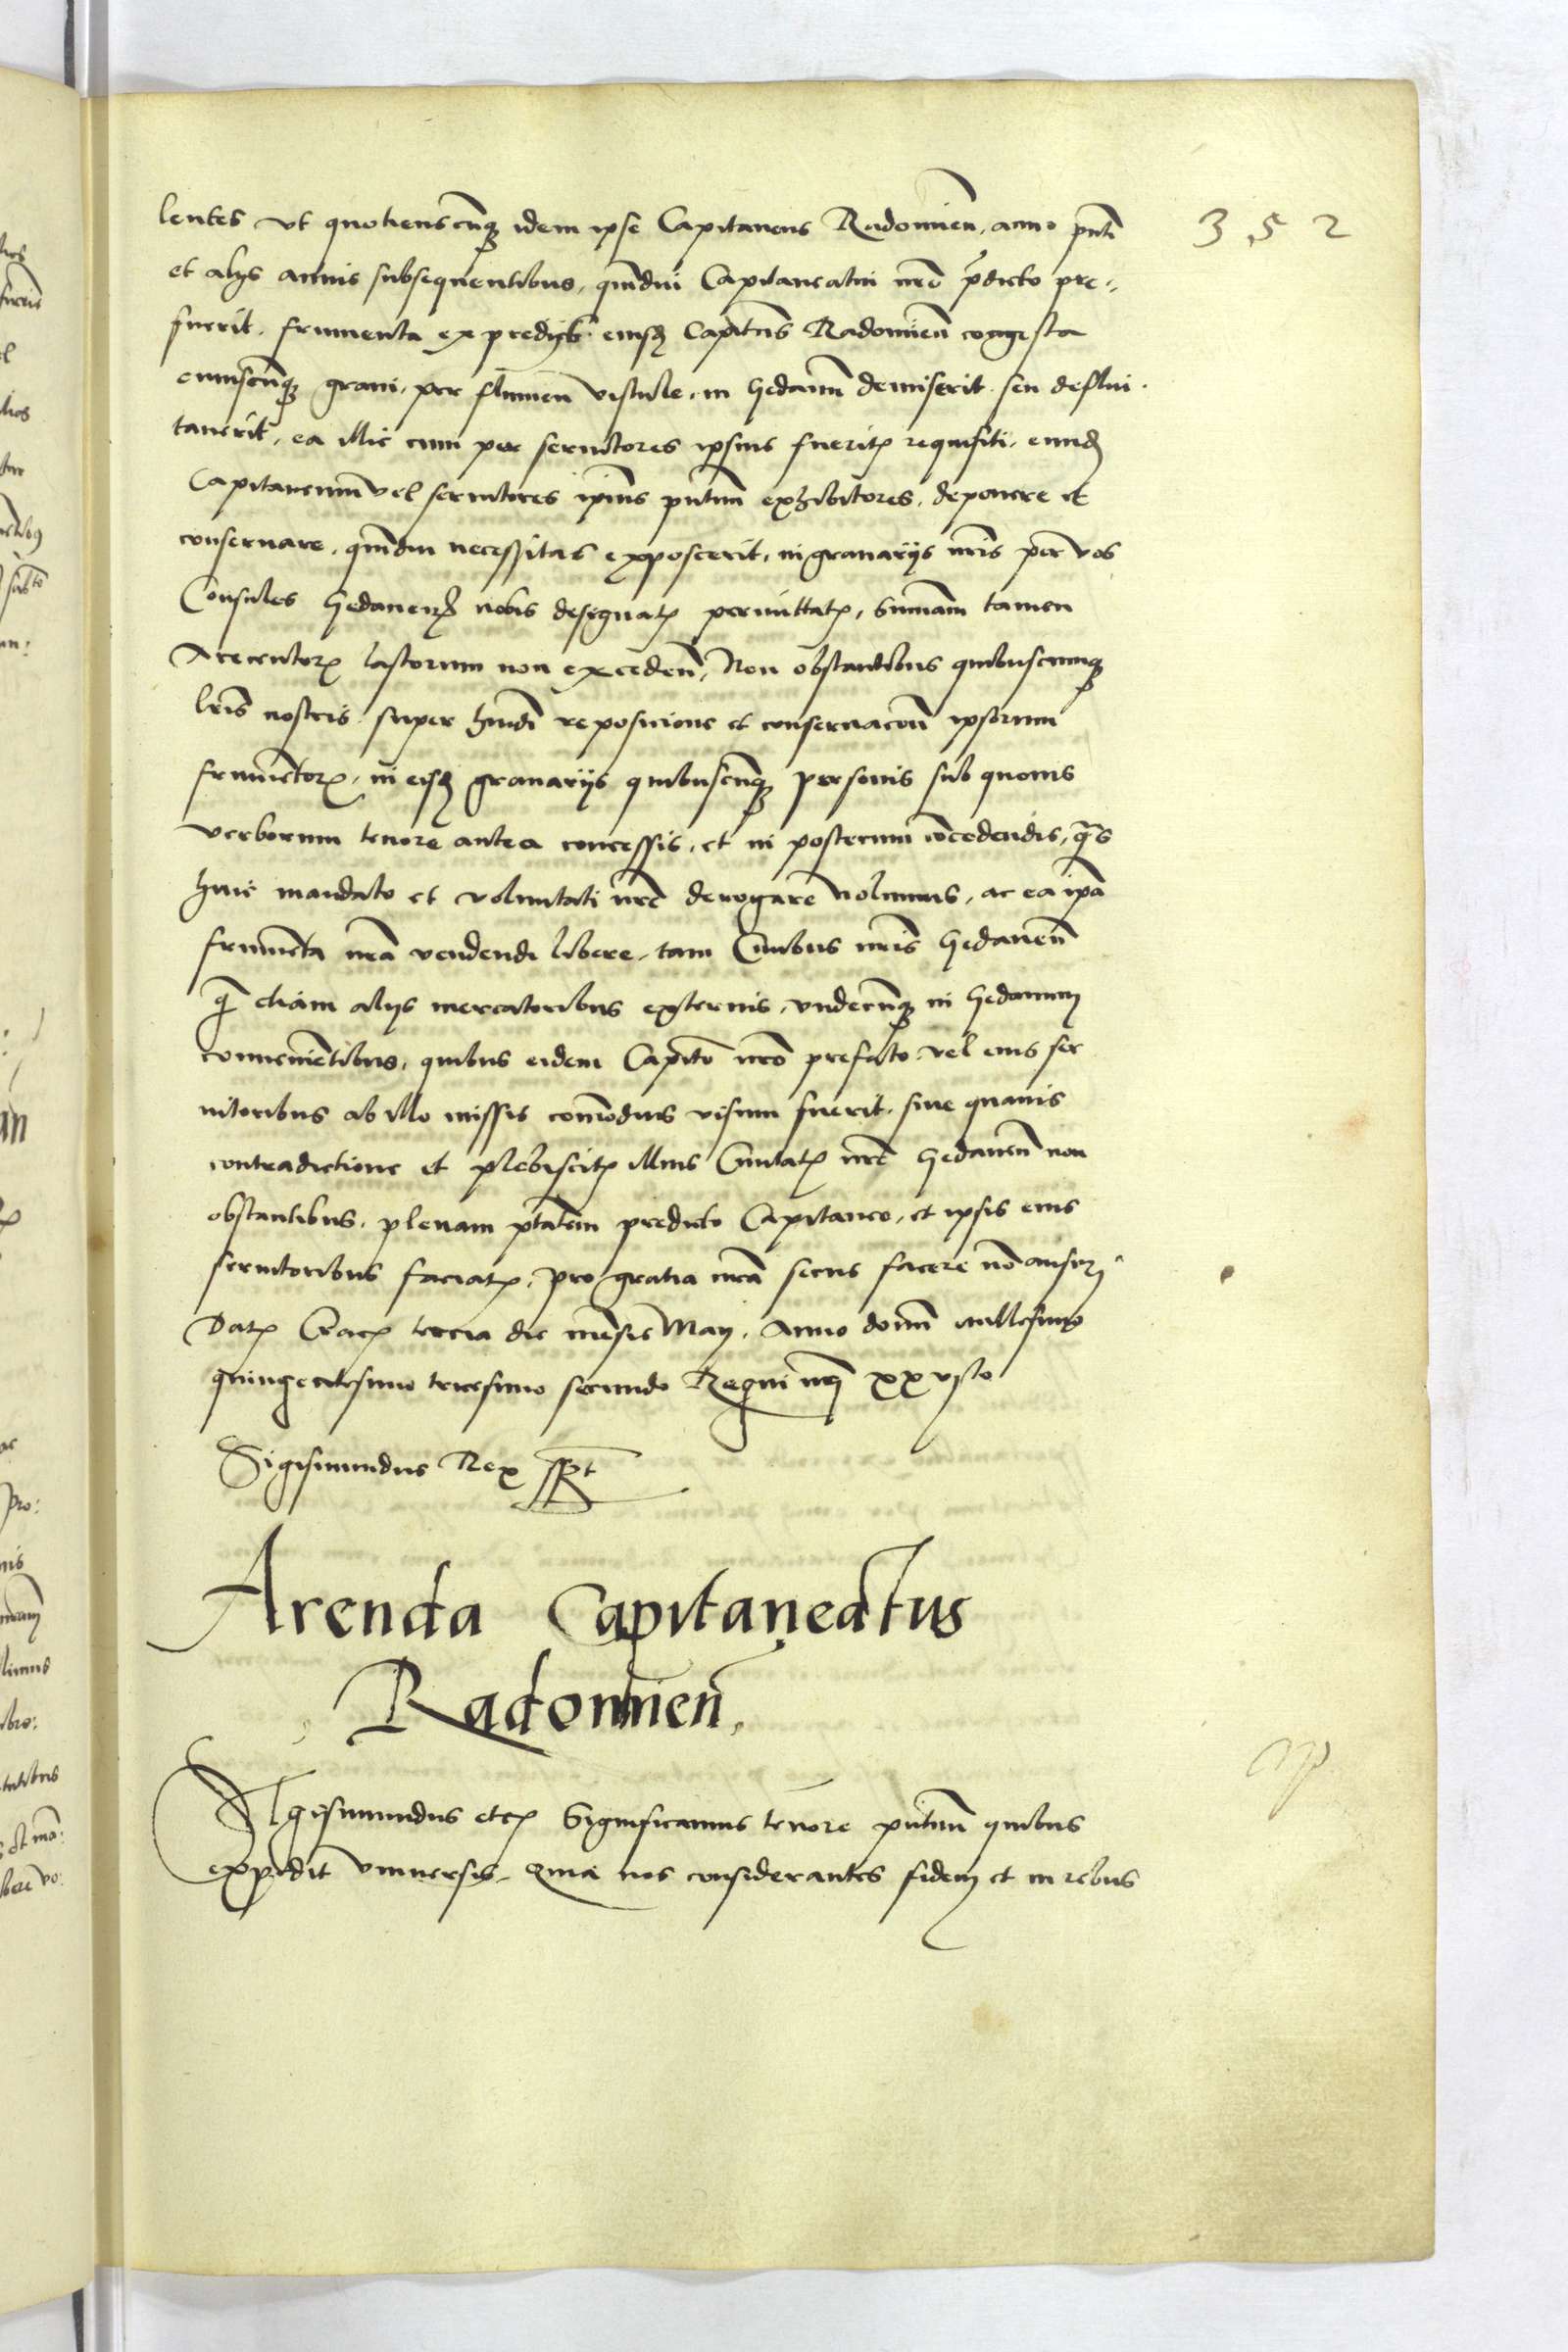 lentes ut quotienscūq idem ipse Capitaneus Radomieñ, anno pnti
352
et alijs annis subsequentibus, quādiu Capitaneatui nrō pdicto pre„
fuerit, frumenta ex predijs eiusd Capitñs Radomieñ congesta
cuiuscūq grani, per flumen Vistule, in Gedanum demiserit seu deflui
tauerit, ea illic cum per seruitores ipsius fueritis requisiti, eund
Capitaneum vel seruitores ipius pntium exhibitores, deponere et
conseruare, quādiu necessitas exposcerit, in granarijs nris per vos
Consules Gedaneñ nobis designatis permittatis, Summam tamen
lastorum non excedeñ, Non obstantibus quibuscunq
lris nostris super hmodi reposicione et conseruacõe ipsorum
frumentor, in eisd granarijs quibuscūq personis sub quouis
verborum tenore antea concessis, et in posterum cōcedendis, qs
huic mandato et voluntati nrē derogare nolumus, ac ea ipa
frumenta nrā vendendi libere, tam Ciuibus nris Gedaneñ
q etiam alijs mercatoribus externis, undecūq in Gedanum
conuenientibus, quibus eidem Capito nrō prefato vel eius ser
uitoribus ab illo missis commodius visum fuerit, sine quauis
contradictione et plebiscitis illius Ciuitatis nrē Gedaneñ non
obstantibus, plenam ptatem predicto Capitaneo, et ipsis eius
seruitoribus faciatis, pro gratia nrā secus facere nō ausuri
Datis Cracis tercia die mēsis Maij, Anno domini millesimo
quingentesimo tricesimo secundo Regni nri xxvjto
Sigismundus Rex sspt
Arenda Capitaneatus
Radomieñ,
Sigismundus etc Significamus tenore pntium quibus
expedit vniuersis, Quia nos considerantes fidem et in rebus